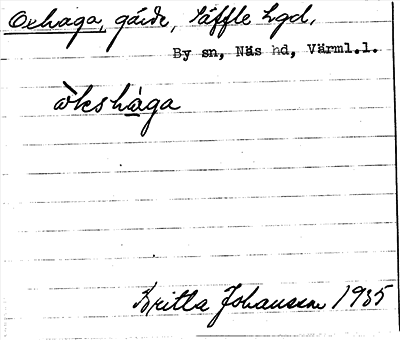 Oxhaga, gärde, Säffle lgd.
By sn, Näs hd, Värml.l.
òkshàga
Britta Johansson 1935